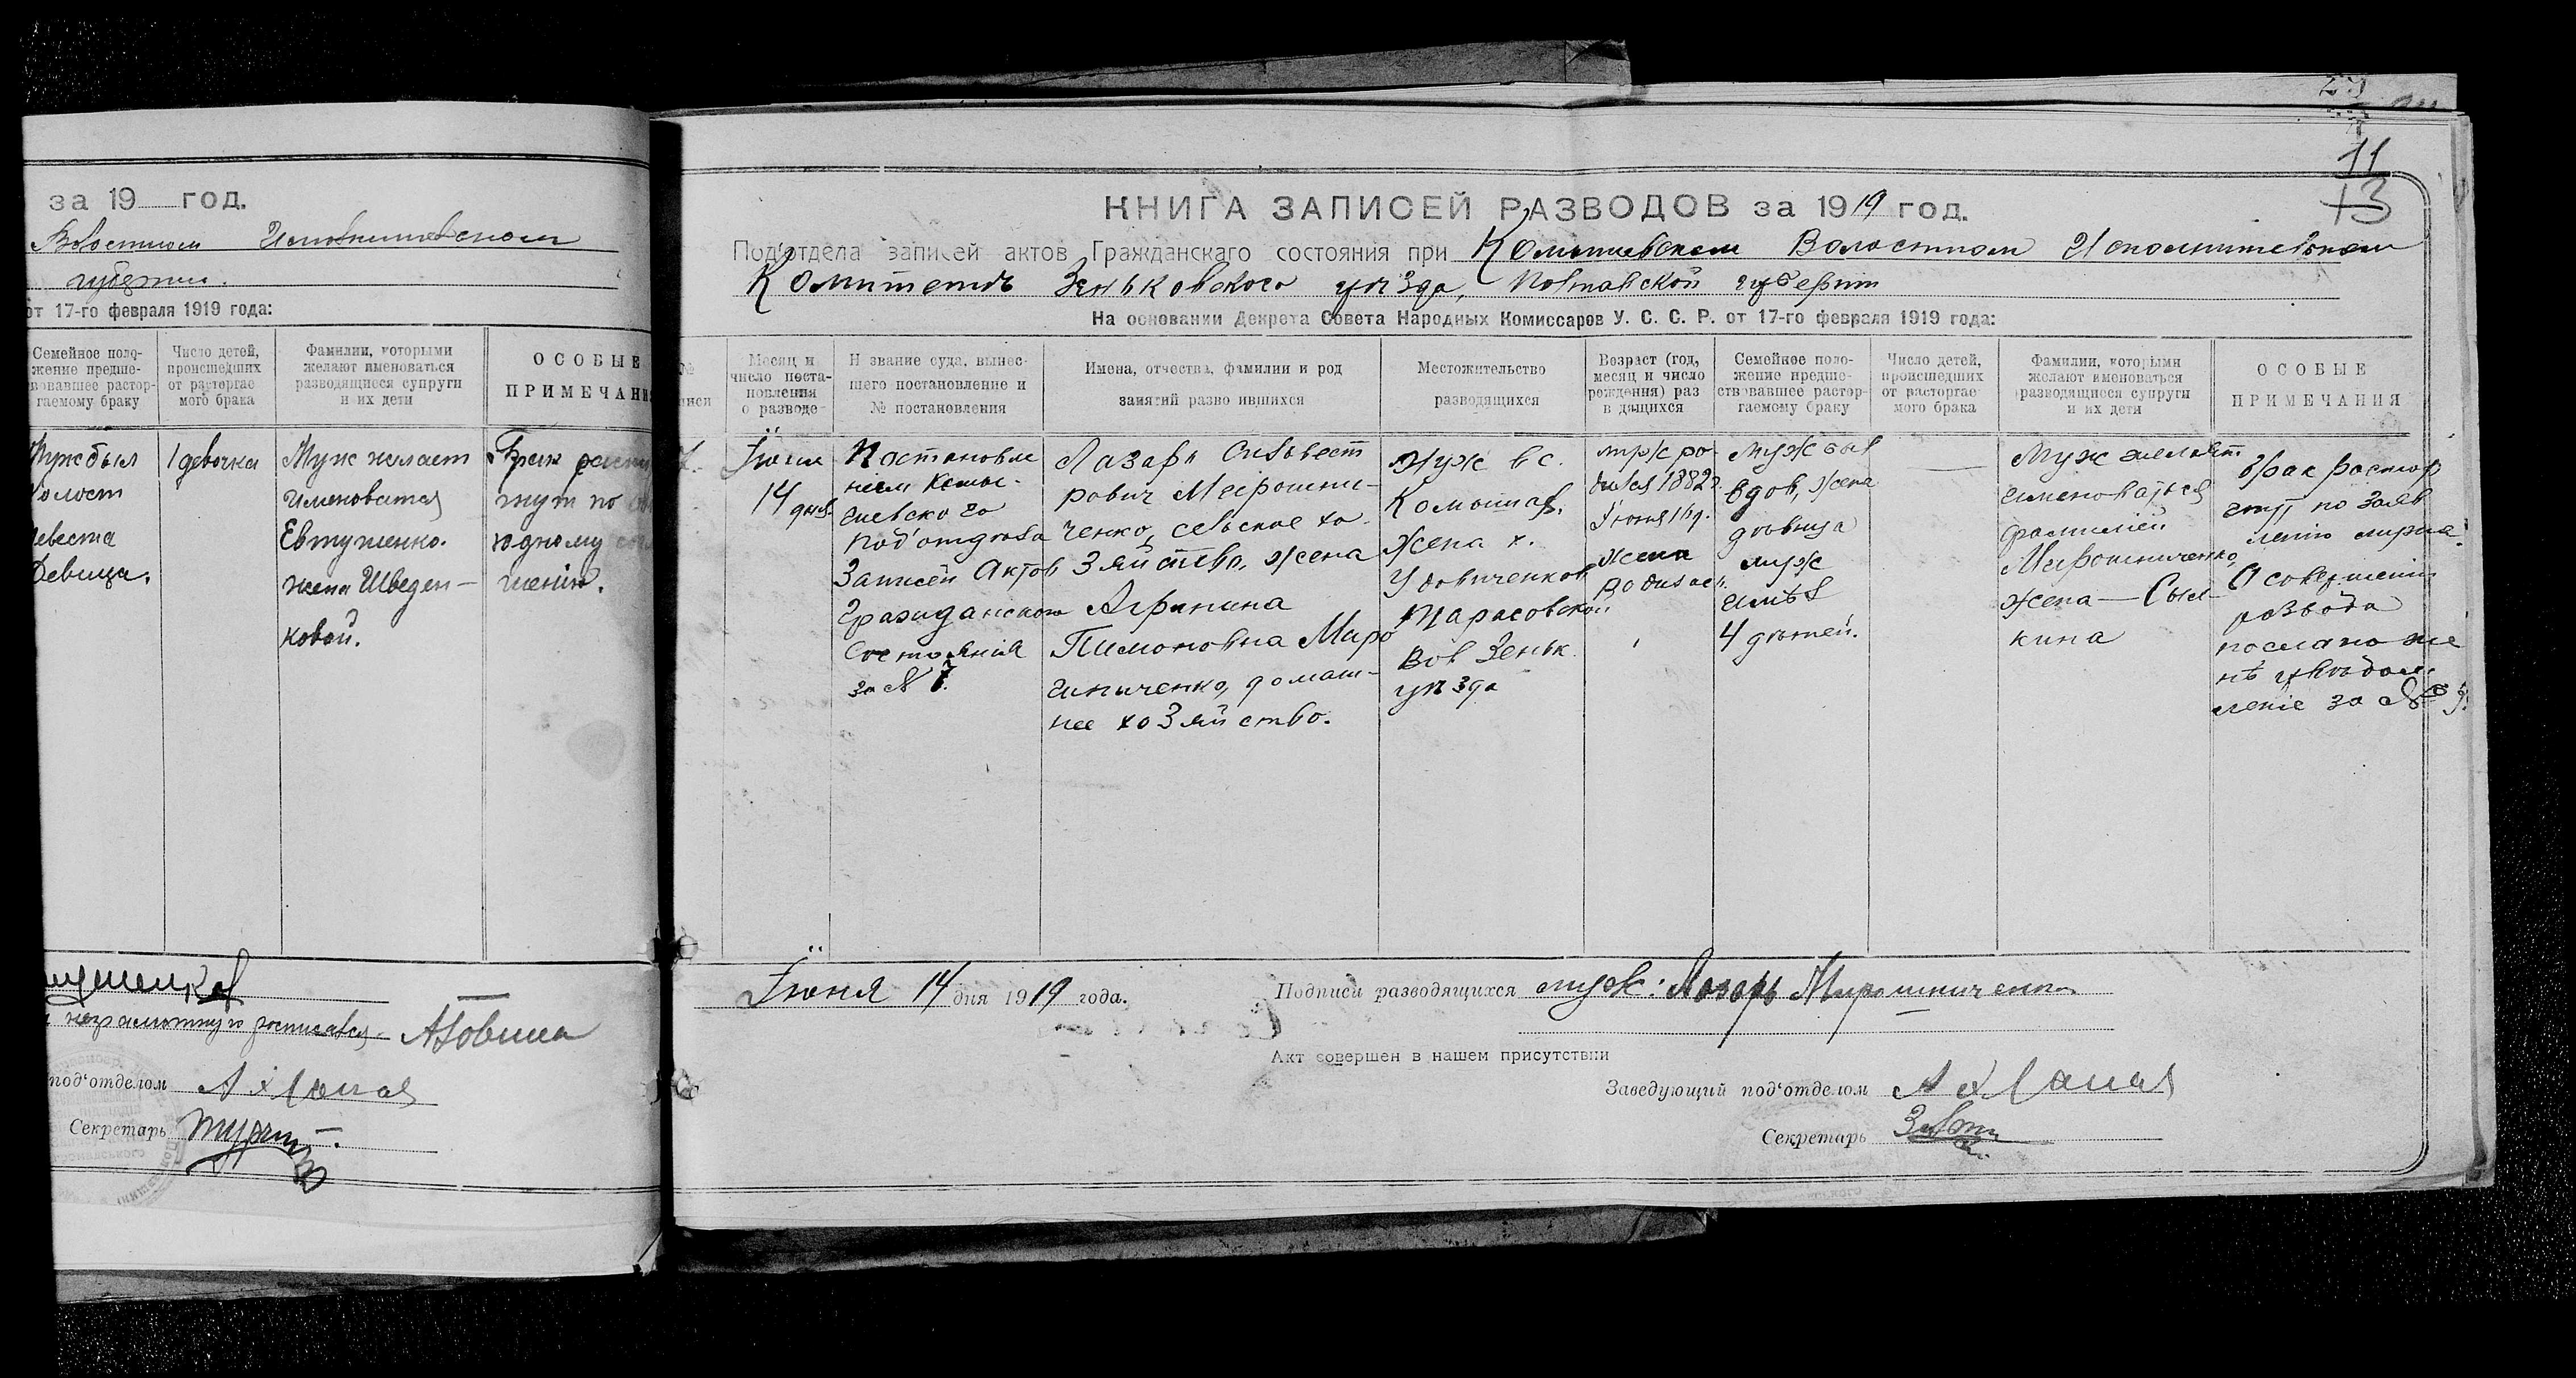 за 19 год.
Волостном Исполнительном
губернии.
от 17-го февраля 1919 года:
Семейное поло-
жение предше-
вовавшее растор-
гаемому браку
Число детей,
происшедших
от расторгае
мого брака
Фамилии, которыми
желают именоваться
разводящиеся супруги
и их дети
ОСОБЫЕ
ПРИМЕЧАНИ
Муж был
холост
невеста
девица.
1 девочка
Муж желает
именоватся
Евтушенко.
жена Шведен-
ковой.
Брак
гнут по
юдному
шенію.
неграмотную росписався
под'отделом
Секретарь
11
13
КНИГА ЗАПИСЕЙ РАЗВОДОВ за 1919 год.
Под'отдела записей актов Гражданскаго состояния при Комышевском Волостном Исполнительном
Комитетѣ Зеньковского уѣзда, Полтавской губернии
На основании Декрета Совета Народных Комиссаров У. С. С. Р. от 17-го февраля 1919 года:
Месяц и
число поста-
новления
о разводе
Н звание суда, вынес-
шего постановление и
№ постановления
Имена, отчества, фамилии и род
занятий разво ившихся
Местожительство
разводящихся
Возраст (год,
месяц и число
рождения) раз
в дящихся
Семейное поло-
жение предше-
ствовавшее растор-
гаемому браку
Число детей,
происшедших
от расторгае
мого брака
Фамилии, которыми
желают именоваться
разводящиеся супруги
и их дети
ОСОБЫЕ
ПРИМЕЧАНИЯ
7.
Іюня
14 дня
Постановле
нием Комы-
шевского
под'отдѣла
Записей Актов
Гражданского
Состояния
за № 7.
Лазарь Сильвест
рович Мирошни-
ченко, сельское хо-
зяйство, жена
Агрипина
Пимоновна Миро
шниченко, домаш-
нее хозяйство.
Муж в с.
Комышах.
Жена х.
Удовиченков
Тарасовской
Вол Зеньк.
уѣзда
муж ро-
дился 1882 г.
Іюня 1 д.
жена
родилась
муж был
вдов, жена
дѣвица
муж
имѣл
4 дѣтей.
—
Муж желает
именоваться
фамилией
Мирошниченко,
жена — Сыл-
кина
Брак растор
гнут по заяв
лению мужа.
О совершении
развода
послано же
нѣ увѣдом-
леніе за №
Іюня 14 дня 1919 года.
Подписи разводящихся муж: Лазарь Мирошниченко
Акт совершен в нашем присутствии
Заведующий под'отделом
Секретарь